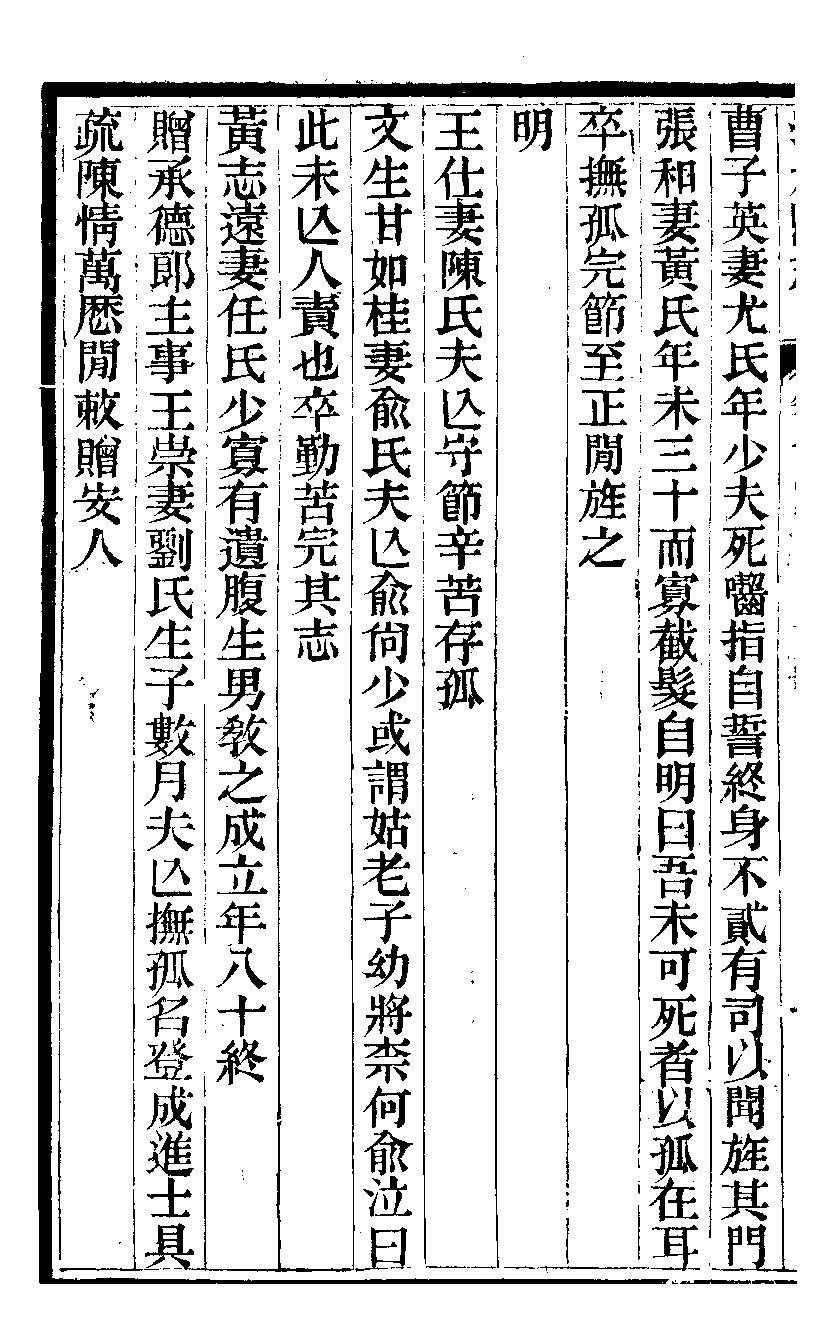 曹子英妻尤氏年少夫死嚙指自誓終身不貳有司以聞旌其門
張和妻黃氏年未三十而寡截髮自明曰吾未可死者以孤在耳
卒撫孤完節至正閒旌之
明
王仕妻陳氏夫亾守節辛苦存孤
文生甘如桂妻兪氏夫亾兪尙少或謂姑老子幼將柰何兪泣曰
此未亾人責也卒勤苦完其志
黃志遠妻任氏少寡有遺腹生男敎之成立年八十終
贈承德郎主事王崇妻劉氏生子數月夫亾撫孤名登成進士具
疏陳情萬厯閒敕贈安人